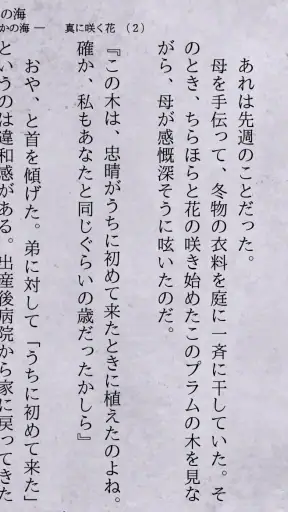 の海
かの海 ―　真に咲く花　（２）
あれは先週のことだった。
母を手伝って、冬物の衣料を庭に一斉に干していた。そ
のとき、ちらほらと花の咲き始めたこのプラムの木を見な
がら、母が感慨深そうに呟いたのだ。
『この木は、忠晴がうちに初めて来たときに植えたのよね。
確か、私もあなたと同じぐらいの歳だったかしら』
おや、と首を傾げた。弟に対して「うちに初めて来た」
というのは違和感がある。出産後病院から家に戻ってきた